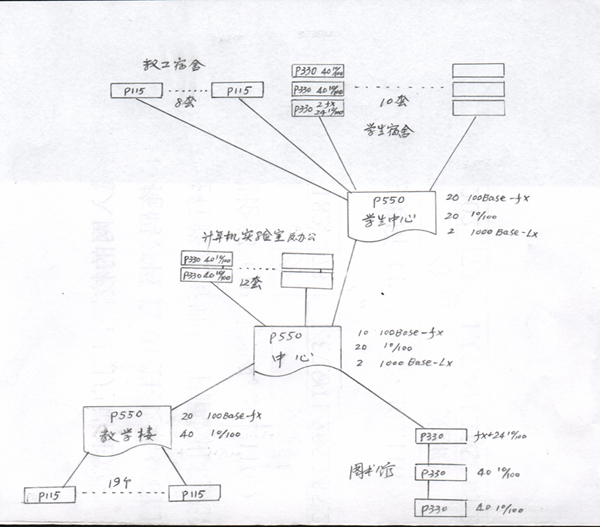 教工宿舍
P115 P115
8套
P330 40 10/100
P330 40 10/100
P330 2fx 24 10/100
10套
学生宿舍
P550
学生中心
20 100Base-fx
20 10/100
2 1000Base-Lx
计算机实验室及办公
P330 40 10/100
P330 40 10/100
12套
P550
中心
10 100Base-fx
20 10/100
2 1000Base-Lx
P550
教学楼
20 100Base-fx
40 10/100
19个
P115 P115
图书馆
P330 fx+24 10/100
P330 40 10/100
P330 40 10/100